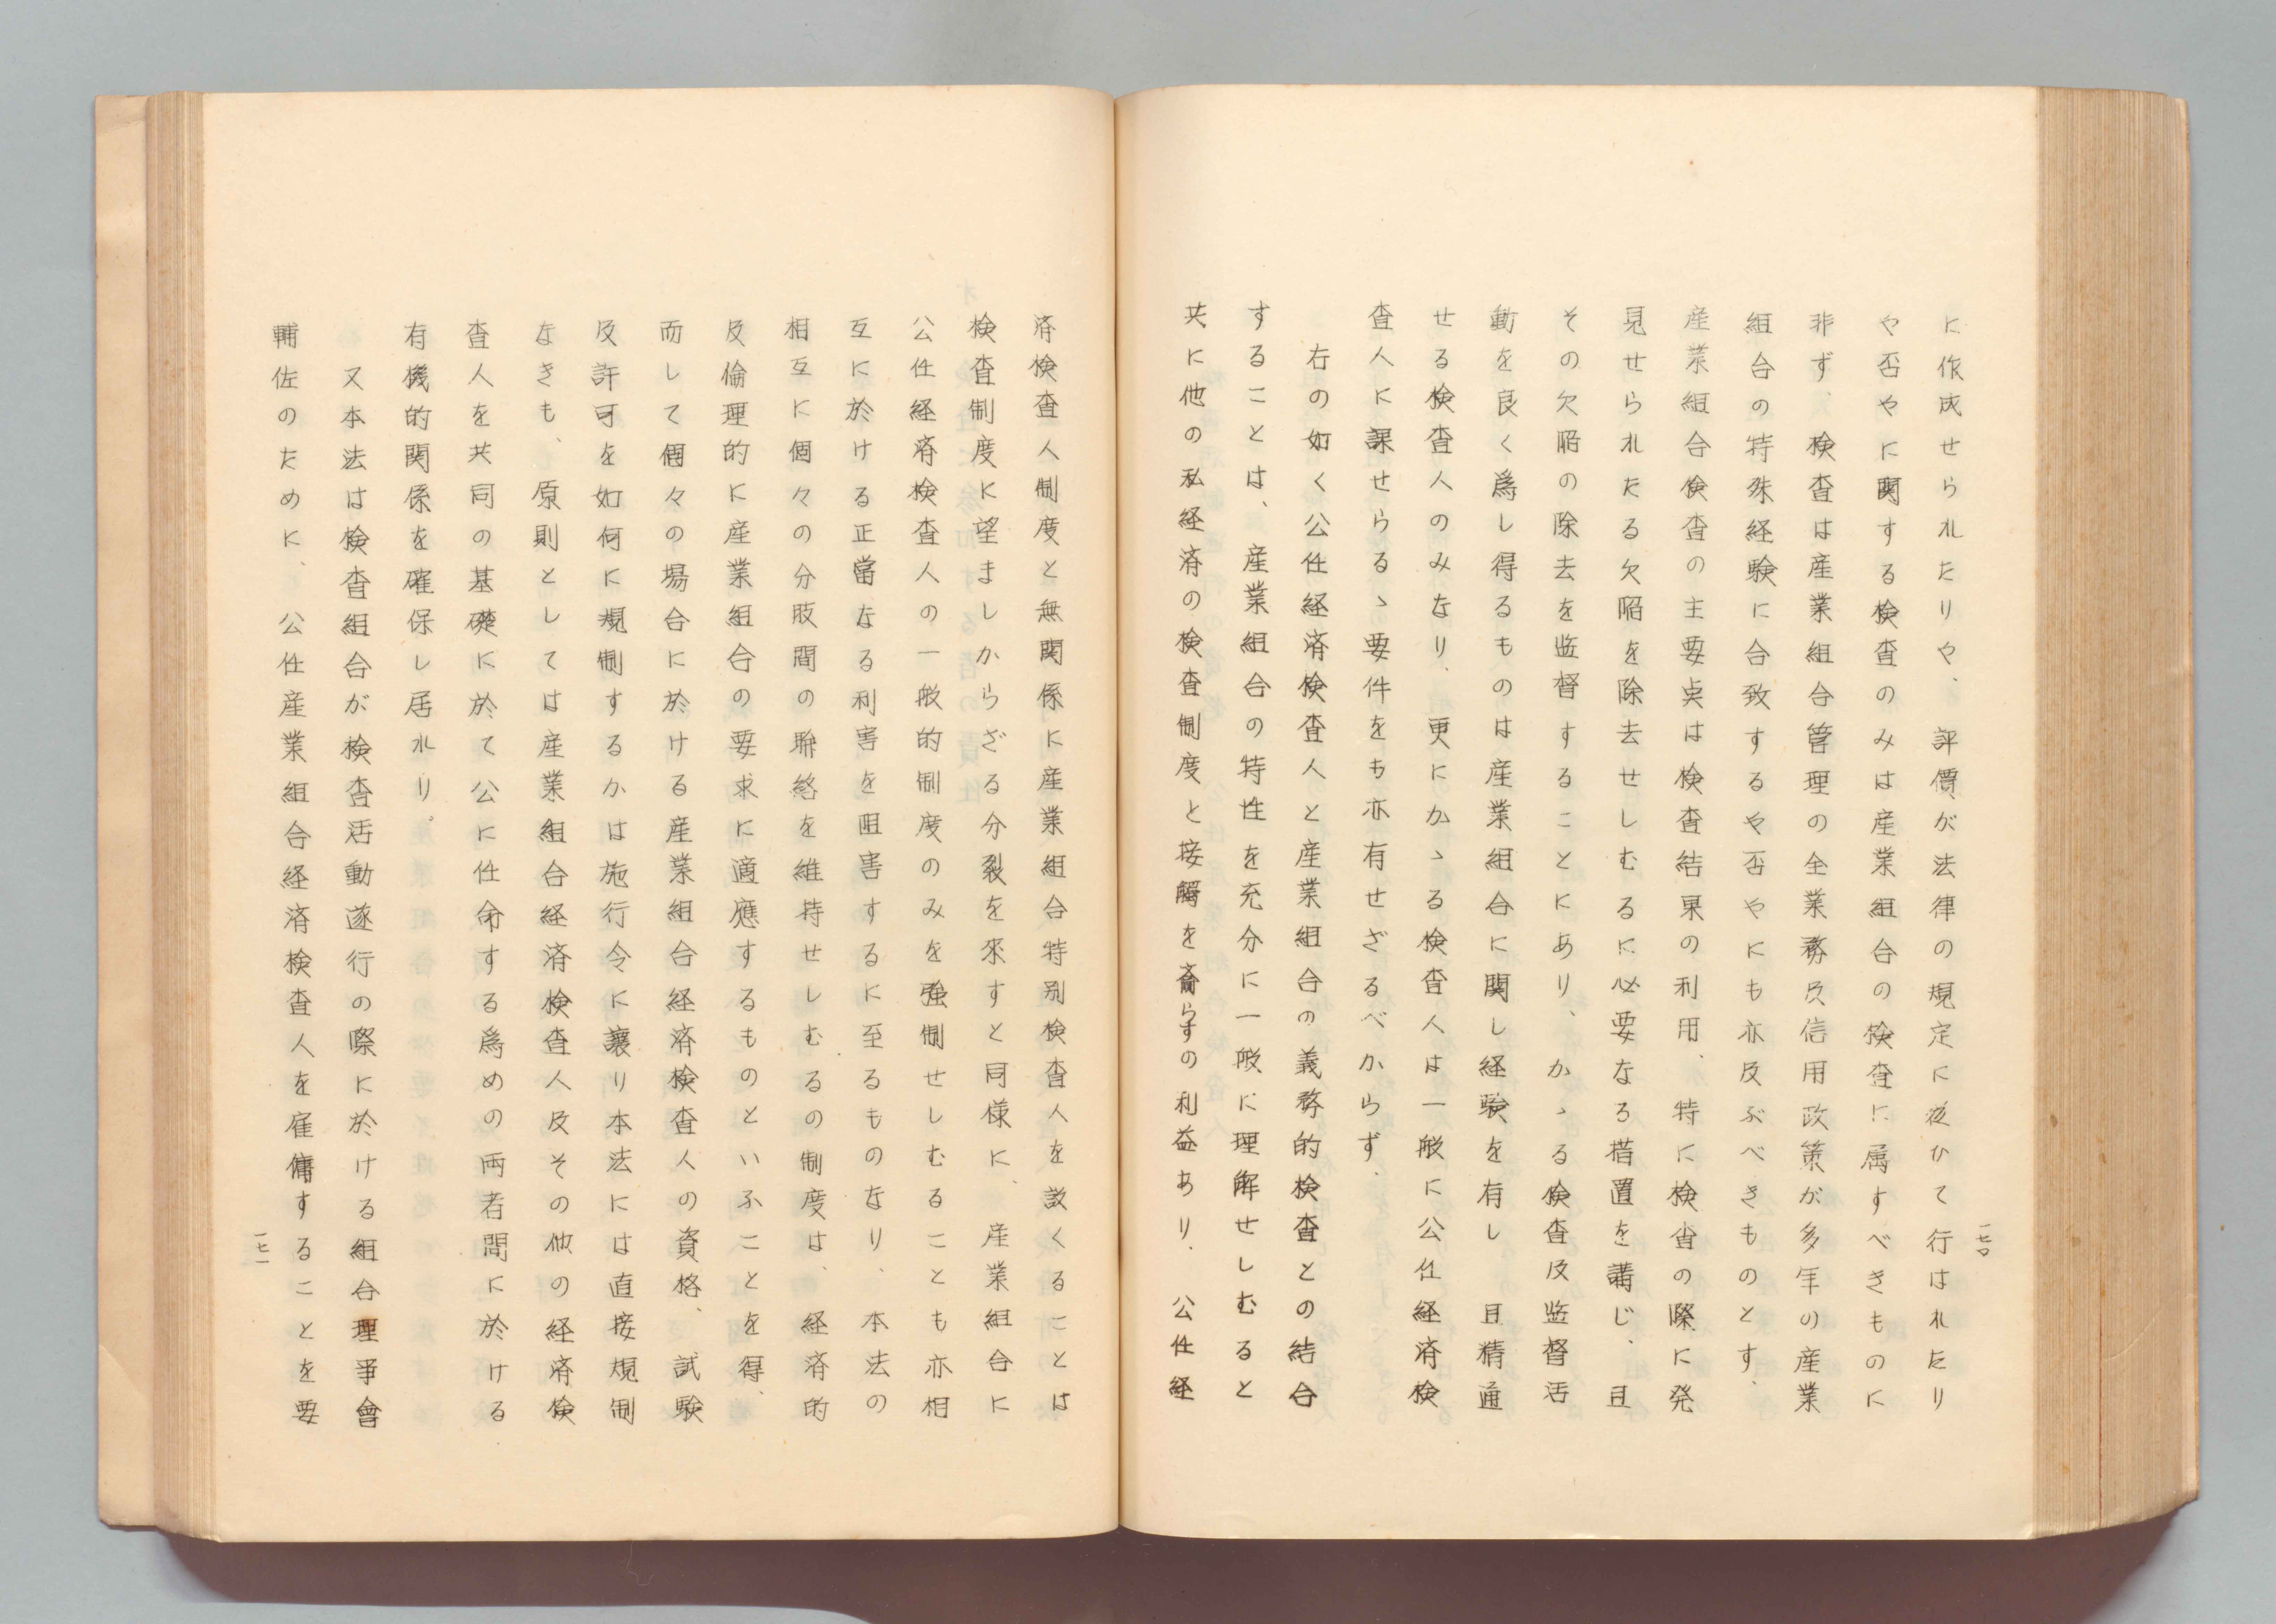 一七〇
に作成せられたりや、評價が法律の規定に從ひて行はれたり
や否やに関する検査のみは産業組合の検査に属すべきものに
非ず、検査は産業組合管理の全業務及信用政策が多年の産業
組合の特殊経験に合致するや否やにも亦及ぶべきものとす、
産業組合検査の主要点は検査結果の利用、特に検査の際に発
見せられたる欠陥を除去せしむるに必要なる措置を講じ、且
その欠陥の除去を監督することにあり、かゝる検査及監督活
動を良く爲し得るものは産業組合に関し経験を有し且精通
せる検査人のみなり、更にかゝる検査人は一般に公任経済検
査人に課せらるゝ要件をも亦有せざるべからず、
右の如く公任経済検査人と産業組合の義務的検査との結合
することは、産業組合の特性を充分に一般に理解せしむると
共に他の私経済の検査制度と接觸を齎らすの利益あり、公任経
済検査人制度と無関係に産業組合特別検査人を設くることは
検査制度に望ましからざる分裂を來すと同様に、産業組合に
公任経済検査人の一般的制度のみを強制せしむることも亦相
互に於ける正當なる利害を阻害するに至るものなり、本法の
相互に個々の分肢間の聯絡を維持せしむるの制度は、経済的
及倫理的に産業組合の要求に適應するものといふことを得、
而して個々の場合に於ける産業組合経済検査人の資格、試験
及許可を如何に規制するかは施行令に譲り本法には直接規制
なきも、原則としては産業組合経済検査人及その他の経済検
査人を共同の基礎に於て公に任命する爲めの両者間に於ける
有機的関係を確保し居れり。
又本法は検査組合が検査活動遂行の際に於ける組合理事會
輔佐のために、公任産業組合経済検査人を雇傭することを要
一七一